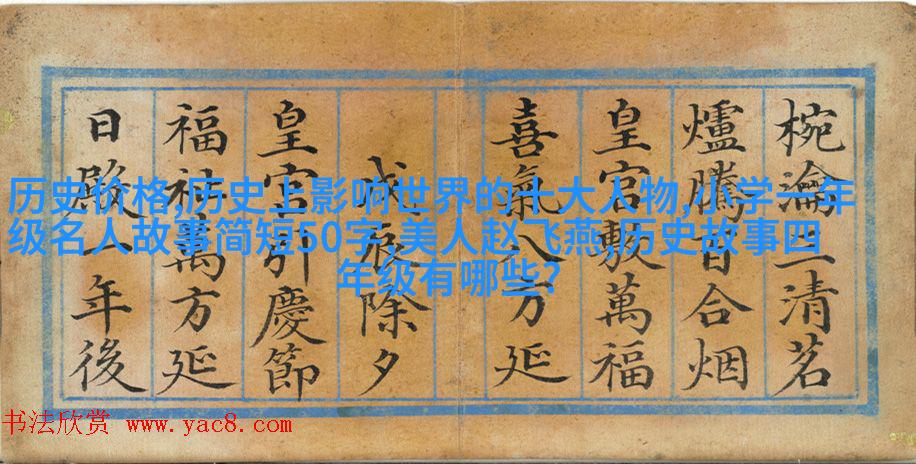 椀瀹三清茗
爐騰百合烟
皇宫敷萬福
喜氣八方延
戊辰除夕
皇宫引慶節
福祉萬方延
日殿一年後
历史价格,历史上影响世界的十大人物,小学一年
级名人故事简短50字,美人赵飞燕,历史故事四
年级有哪些?
书法欣赏 www.yac8.com